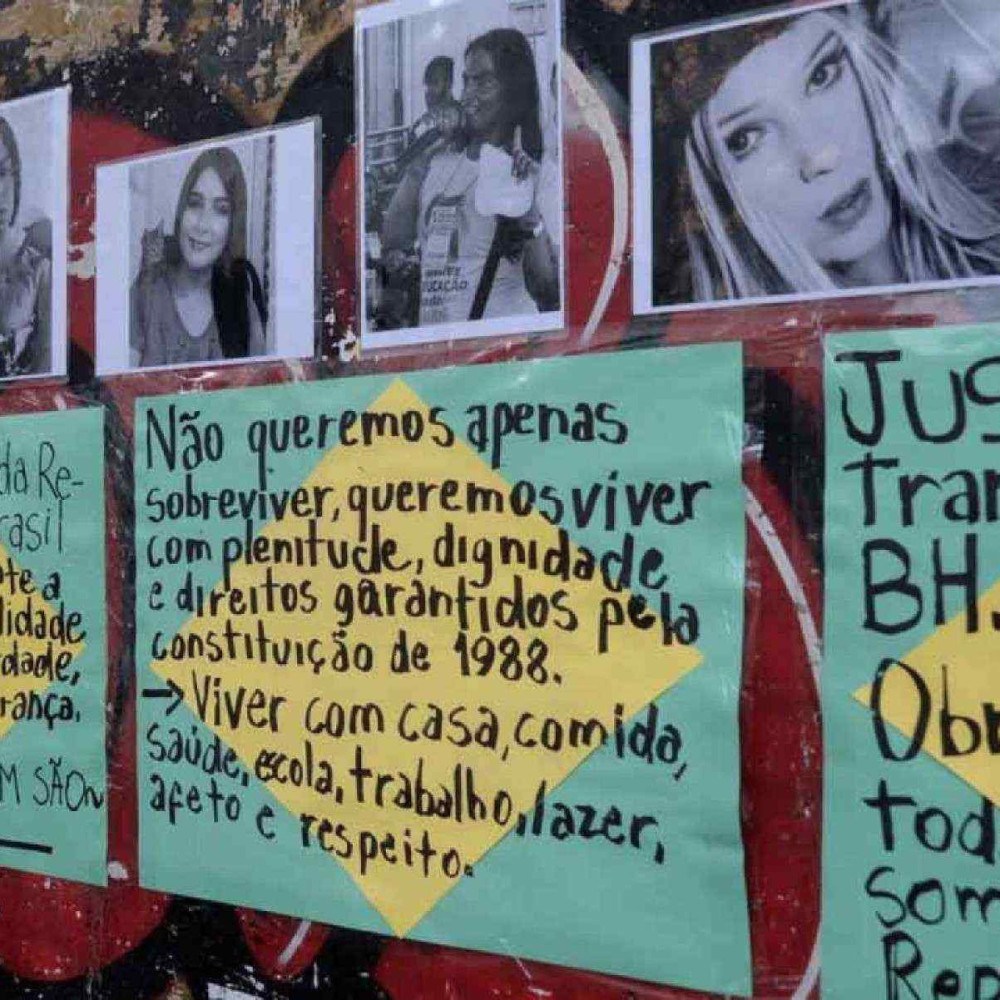 da Re-
rasil
te a
lidade
dade,
rança.
M SÃO
Não queremos apenas
sobreviver, queremos viver
com plenitude, dignidade
e direitos garantidos pela
constituição de 1988.
→ Viver com casa, comida,
saúde, escola, trabalho, lazer,
afeto e respeito.
JUS
Tran
BH
Ob
tod
som
Rep